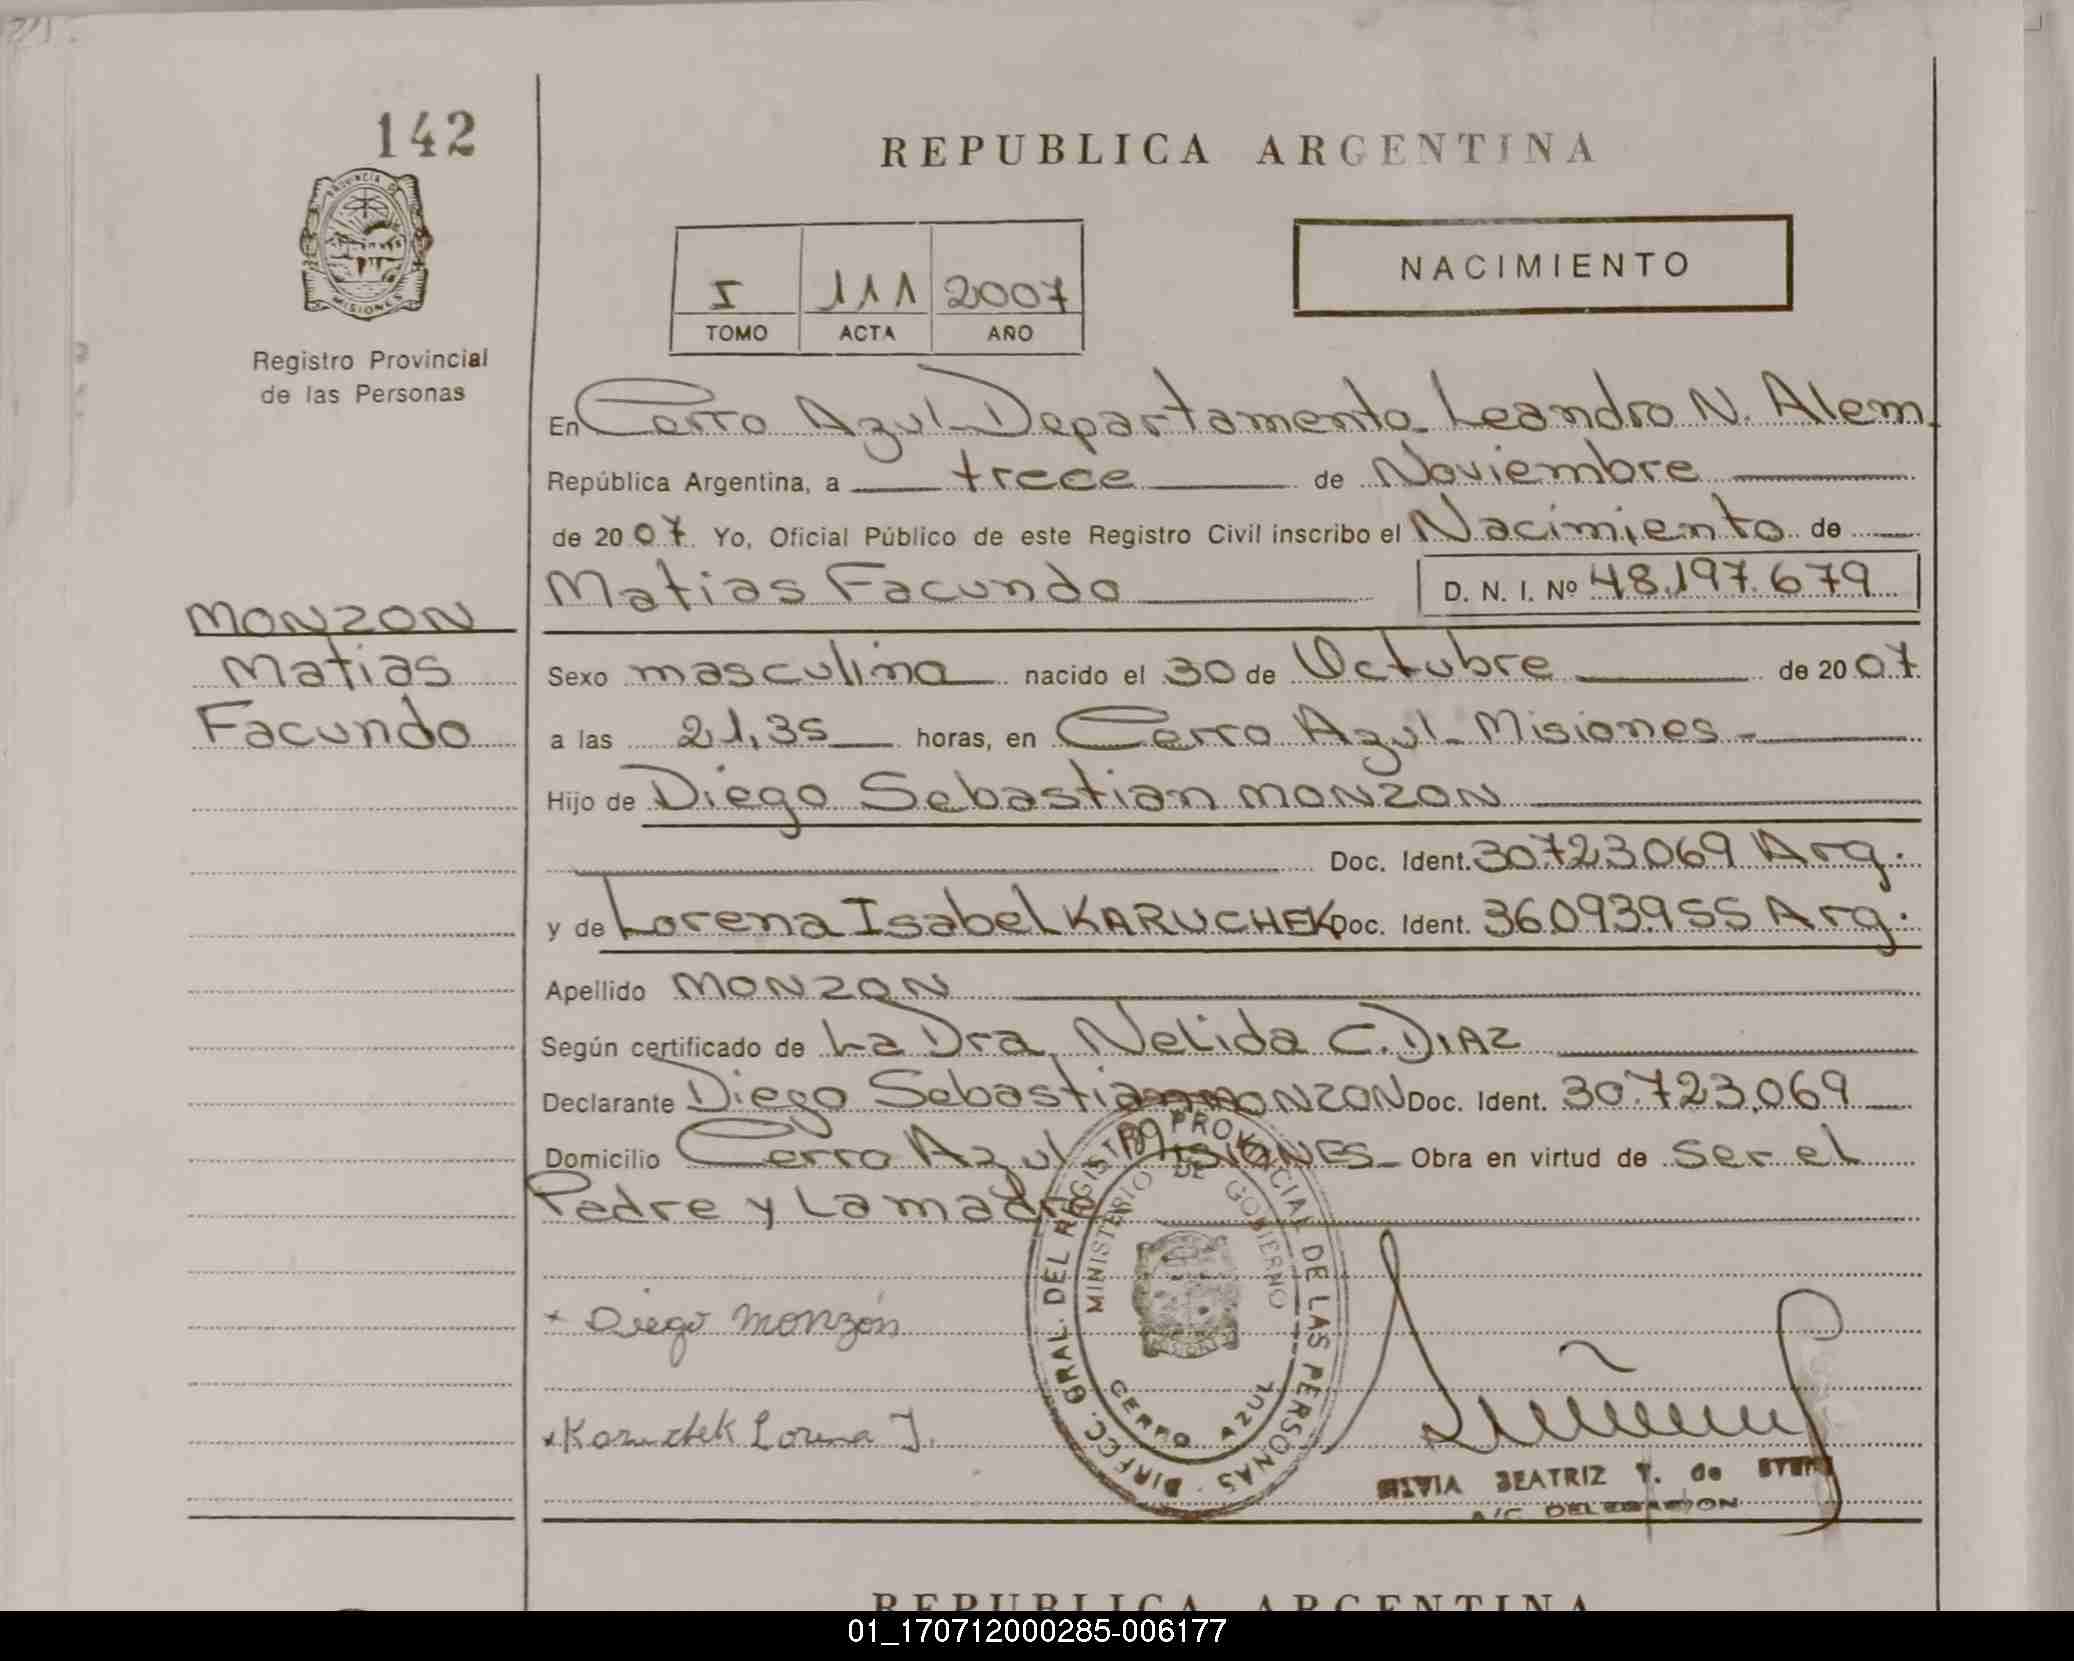 142
REPUBLICA ARGENTINA
PROVINCIA DE
MISIONES
Registro Provincial
de las Personas
I 111 2007
TOMO ACTA AÑO
NACIMIENTO
En Cerro Azul - Departamento Leandro N. Alem
República Argentina, a trece de Noviembre
de 2007. Yo, Oficial Público de este Registro Civil inscribo el Nacimiento de
Matias Facundo D. N. I. Nº 48.197.679
MONZON
Matias
Facundo
Sexo masculino nacido el 30 de Octubre de 2007.
a las 21,35 horas, en Cerro Azul - Misiones -
Hijo de Diego Sebastian MONZON
Doc. Ident. 30723069 Arg.
y de Lorena Isabel KARUCHEK Doc. Ident. 36093955 Arg.
Apellido MONZON
Según certificado de La Dra. Nelida C. DIAZ
Declarante Diego Sebastian MONZON Doc. Ident. 30.723.069
Domicilio Cerro Azul MISIONES - Obra en virtud de ser el
Padre y La madre
DIRECC. GRAL. DEL REGISTRO PROVINCIAL DE LAS PERSONAS
MINISTERIO DE GOBIERNO
CERRO AZUL
Diego Monzón
Karuchek Lorena I.
SILVIA BEATRIZ T. de
A/C DELEGACION
REPUBLICA ARGENTINA
01_170712000285-006177